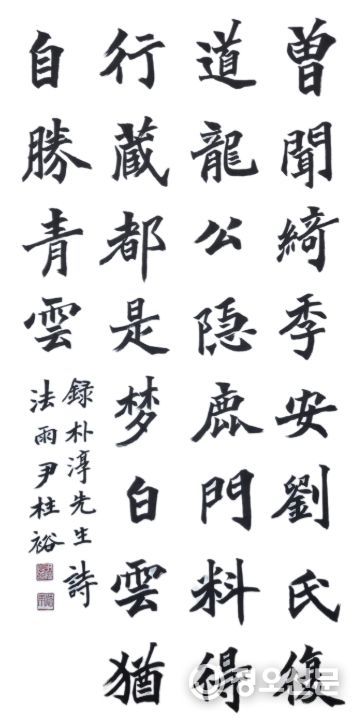 曾聞綺季安劉氏復
道龍公隠鹿門料得
行藏都是梦白雲猶
自勝青雲
録朴淳先生詩
法雨尹柱裕
경오신문